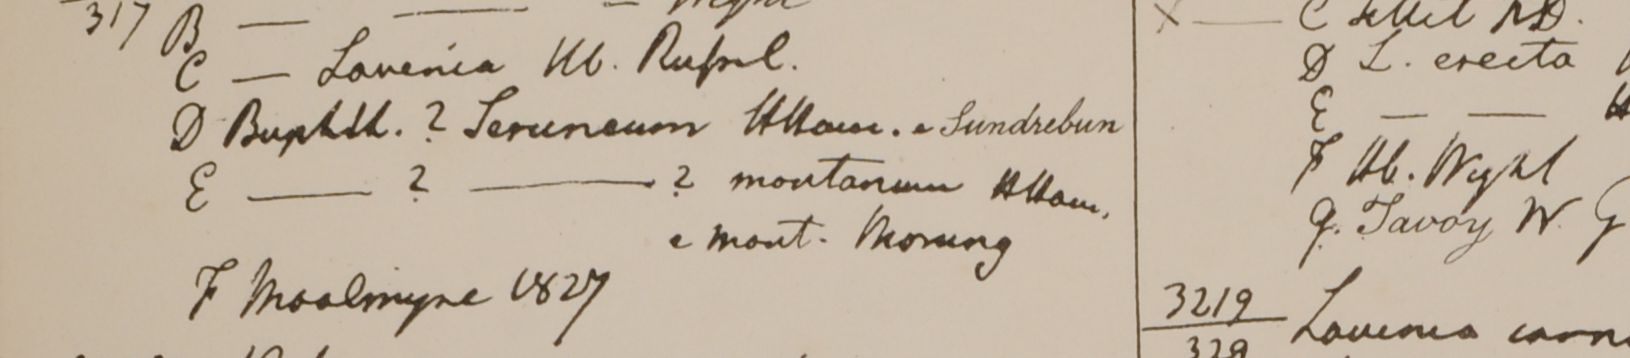 317 B — — — Wight
C — Lavenia Hb. Russel.
D Buphth. ? Seruneum HHam. e Sundrebun
E — ? — ? montanum HHam.
e mont. Morung
F Moalmyne 1827
X — C
D L. erecta
E — —
F Hb. Wight
G. Tavoy W. G
3219
328
Lavenia